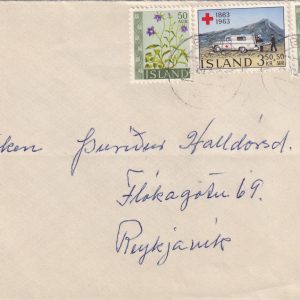 50
AUR
ÍSLAND
1863
1963
ÍSLAND 3 50.50
KR. AUR
ken Þuríður Halldórsd.
Flókagötu 69.
Reykjavík